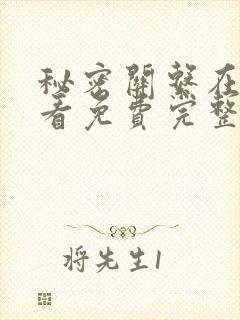 秘密關繫在
看免費完整
将先生1